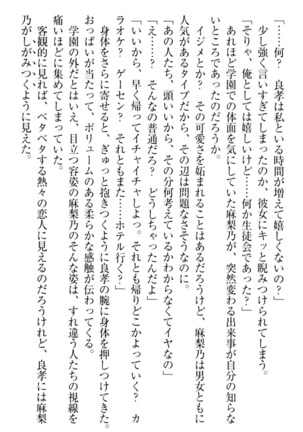 「なに？　良孝は私といる時間が増えて嬉しくないの？」
少し強く言いすぎてしまったのか、彼女にキッと睨みつけられてしまう。
「そりゃ、俺としては嬉しいけど……何か生徒会であった？」
あれほど学園での体面を気にしていた麻梨乃が、突然変わる出来事が自分の知らな
いところであったのだろうか。
イジメとか？　その可愛さを妬まれることはあるだろうけど、麻梨乃は男女ともに
人気があるタイプだから、その辺は問題なさそうなのに。
「あの人たち、頭いいから、その分何考えているかわからなくてイヤなの」
「え……？　そんなの普通だろ？　どうしちゃったんだよ」
「いいから。早く帰ってイチャイチャしよっ。それとも帰りどこかよっていく？　カ
ラオケ？　ゲーセン？　それともまた……ホテル行く？」
身体をさらに寄せると、ぎゅっと抱きつくように良孝の腕に身体を押しつけてきた。
おっぱいが当たって、ボリュームのある柔らかな感触が伝わってくる。
学園の外だとはいえ、目立つ容姿の麻梨乃のそんな姿は、すれ違う人たちの視線を
痛いほどに集めてしまっていた。
客観的に見れば、ベタベタする熱々の恋人に見えるのだろうけれど、良孝には麻梨
乃がしがみつくように見えた。